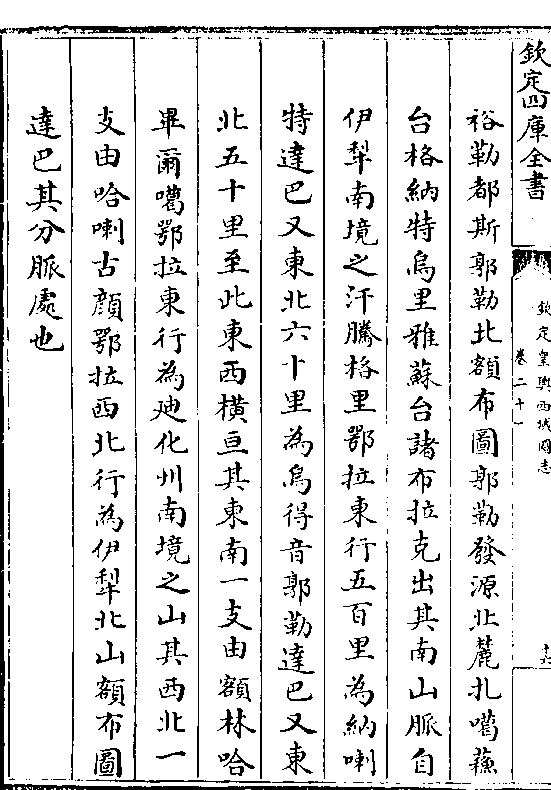 欽定四庫全書
欽定皇輿西域圖志
卷二十一
十六
裕勒都斯郭勒北額布圖郭勒發源北麓扎噶蘇
台格納特烏里雅蘇台諸布拉克出其南山脈自
伊犂南境之汗騰格里鄂拉東行五百里為納喇
特達巴又東北六十里為烏得音郭勒達巴又東
北五十里至此東西橫亘其東南一支由額林哈
畢爾噶鄂拉東行為廸化州南境之山其西北一
支由哈喇古顔鄂拉西北行為伊犂北山額布圖
達巴其分脈處也